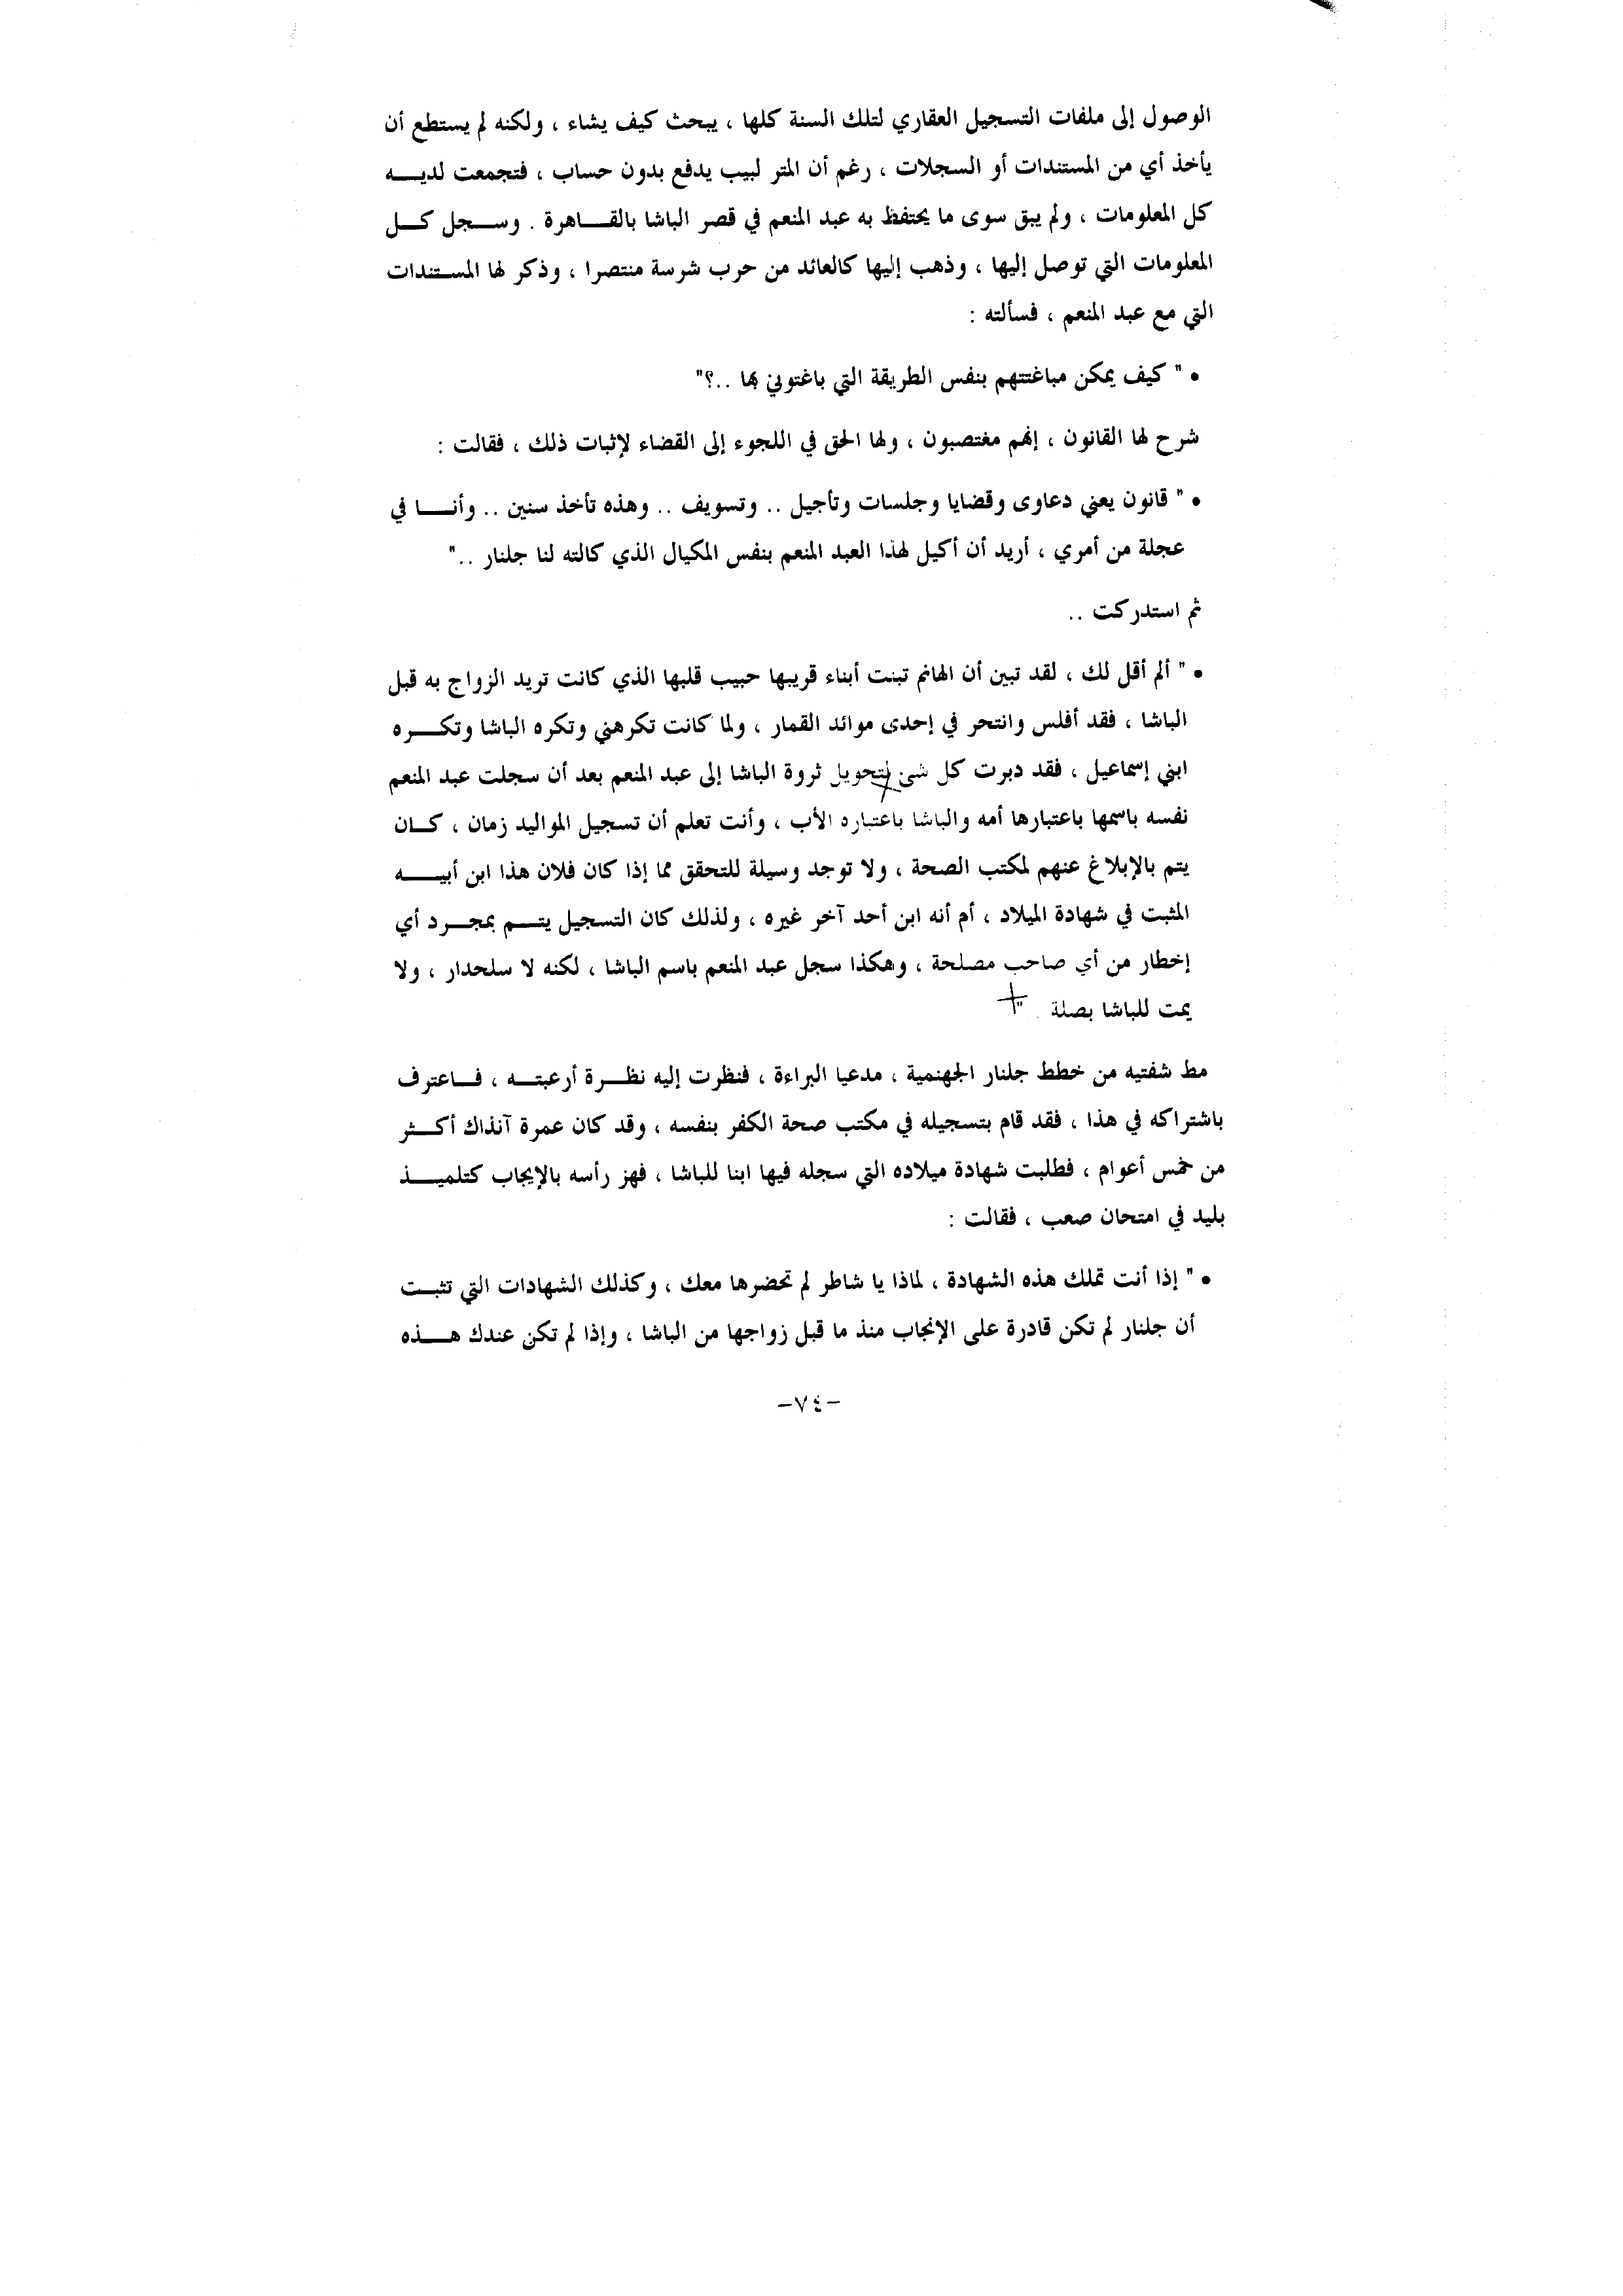 الوصول إلى ملفات التسجيل العقاري لتلك السنة كلها ، يبحث كيف يشاء ، ولكنه لم يستطع أن
يأخذ أي من المستندات أو السجلات ، رغم أن المتر لبيب يدفع بدون حساب ، فتجمعت لديـــه
كل المعلومات ، ولم يبق سوى ما يحتفظ به عبد المنعم في قصر الباشا بالقـــاهرة . وســجل كـــل
المعلومات التي توصل إليها ، وذهب إليها كالعائد من حرب شرسة منتصرا ، وذكر لها المســتندات
التي مع عبد المنعم ، فسألته :
• " كيف يمكن مباغتتهم بنفس الطريقة التي باغتوني بها ..؟"
شرح لها القانون ، إنهم مغتصبون ، ولها الحق في اللجوء إلى القضاء لإثبات ذلك ، فقالت :
• " قانون يعني دعاوى وقضايا وجلسات وتأجيل .. وتسويف .. وهذه تأخذ سنين .. وأنـــا في
عجلة من أمري ، أريد أن أكيل لهذا العبد المنعم بنفس المكيال الذي كالته لنا جلنار .."
ثم استدركت ..
• " ألم أقل لك ، لقد تبين أن الهانم تبنت أبناء قريبها حبيب قلبها الذي كانت تريد الزواج به قبل
الباشا ، فقد أفلس وانتحر في إحدى موائد القمار ، ولما كانت تكرهني وتكره الباشا وتكـــره
ابني إسماعيل ، فقد دبرت كل شئ لتحويل ثروة الباشا إلى عبد المنعم بعد أن سجلت عبد المنعم
نفسه باسمها باعتبارها أمه والباشا باعتباره الأب ، وأنت تعلم أن تسجيل المواليد زمان ، كــان
يتم بالإبلاغ عنهم لمكتب الصحة ، ولا توجد وسيلة للتحقق مما إذا كان فلان هذا ابن أبيـــه
المثبت في شهادة الميلاد ، أم أنه ابن أحد آخر غيره ، ولذلك كان التسجيل يتـــم بمجـــرد أي
إخطار من أي صاحب مصلحة ، وهكذا سجل عبد المنعم باسم الباشا ، لكنه لا سلحدار ، ولا
يمت للباشا بصلة . "
مط شفتيه من خطط جلنار الجهنمية ، مدعيا البراءة ، فنظرت إليه نظـــرة أرعبتـــه ، فـــاعترف
باشتراكه في هذا ، فقد قام بتسجيله في مكتب صحة الكفر بنفسه ، وقد كان عمرة آنذاك أكـــثر
من خمس أعوام ، فطلبت شهادة ميلاده التي سجله فيها ابنا للباشا ، فهز رأسه بالإيجاب كتلميـــذ
بليد في امتحان صعب ، فقالت :
• " إذا أنت تملك هذه الشهادة ، لماذا يا شاطر لم تحضرها معك ، وكذلك الشهادات التي تثبــت
أن جلنار لم تكن قادرة على الإنجاب منذ ما قبل زواجها من الباشا ، وإذا لم تكن عندك هـــذه
-٧٤-